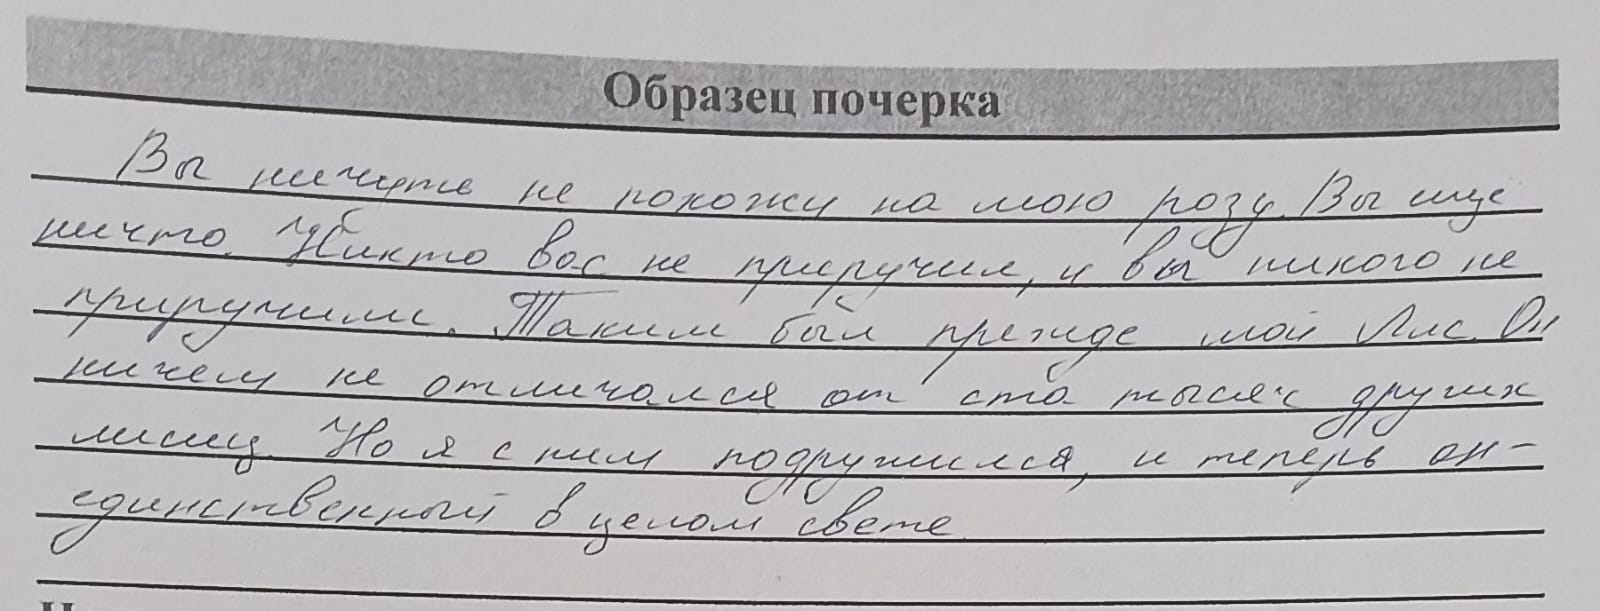 Образец почерка
Вы ничуть не похожи на мою розу. Вы еще
ничто. Никто вас не приручил, и вы никого не
приручили. Таким был прежде мой Лис. Он
ничем не отличался от ста тысяч других
лисиц. Но я с ним подружился, и теперь он -
единственный в целом свете.